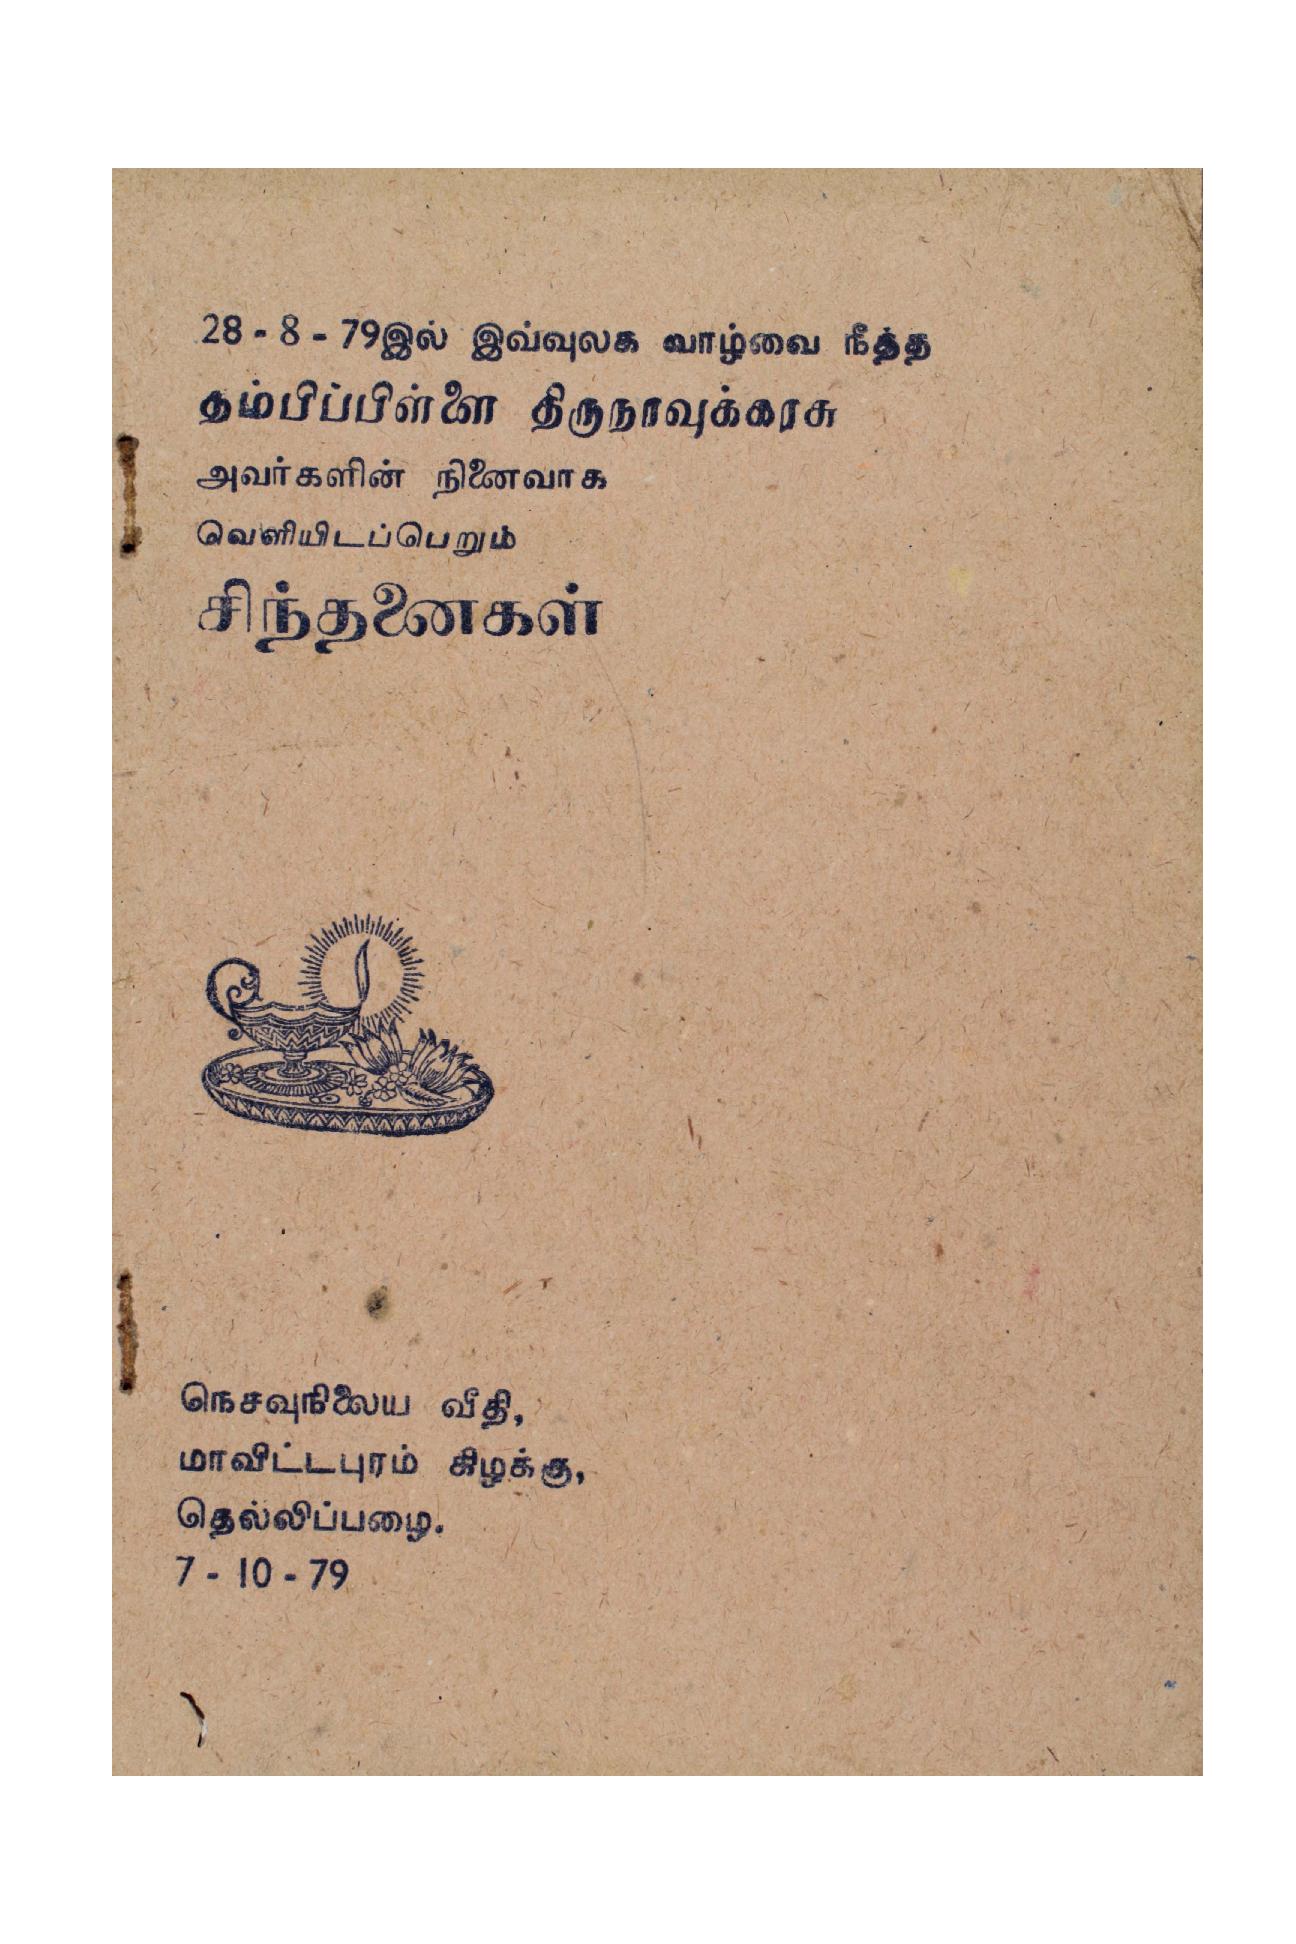 28 - 8 - 79இல் இவ்வுலக வாழ்வை நீத்த
தம்பிப்பிள்ளை திருநாவுக்கரசு
அவர்களின் நினைவாக
வெளியிடப்பெறும்
சிந்தனைகள்
நெசவுநிலைய வீதி,
மாவிட்டபுரம் கிழக்கு,
தெல்லிப்பழை.
7 - 10 - 79